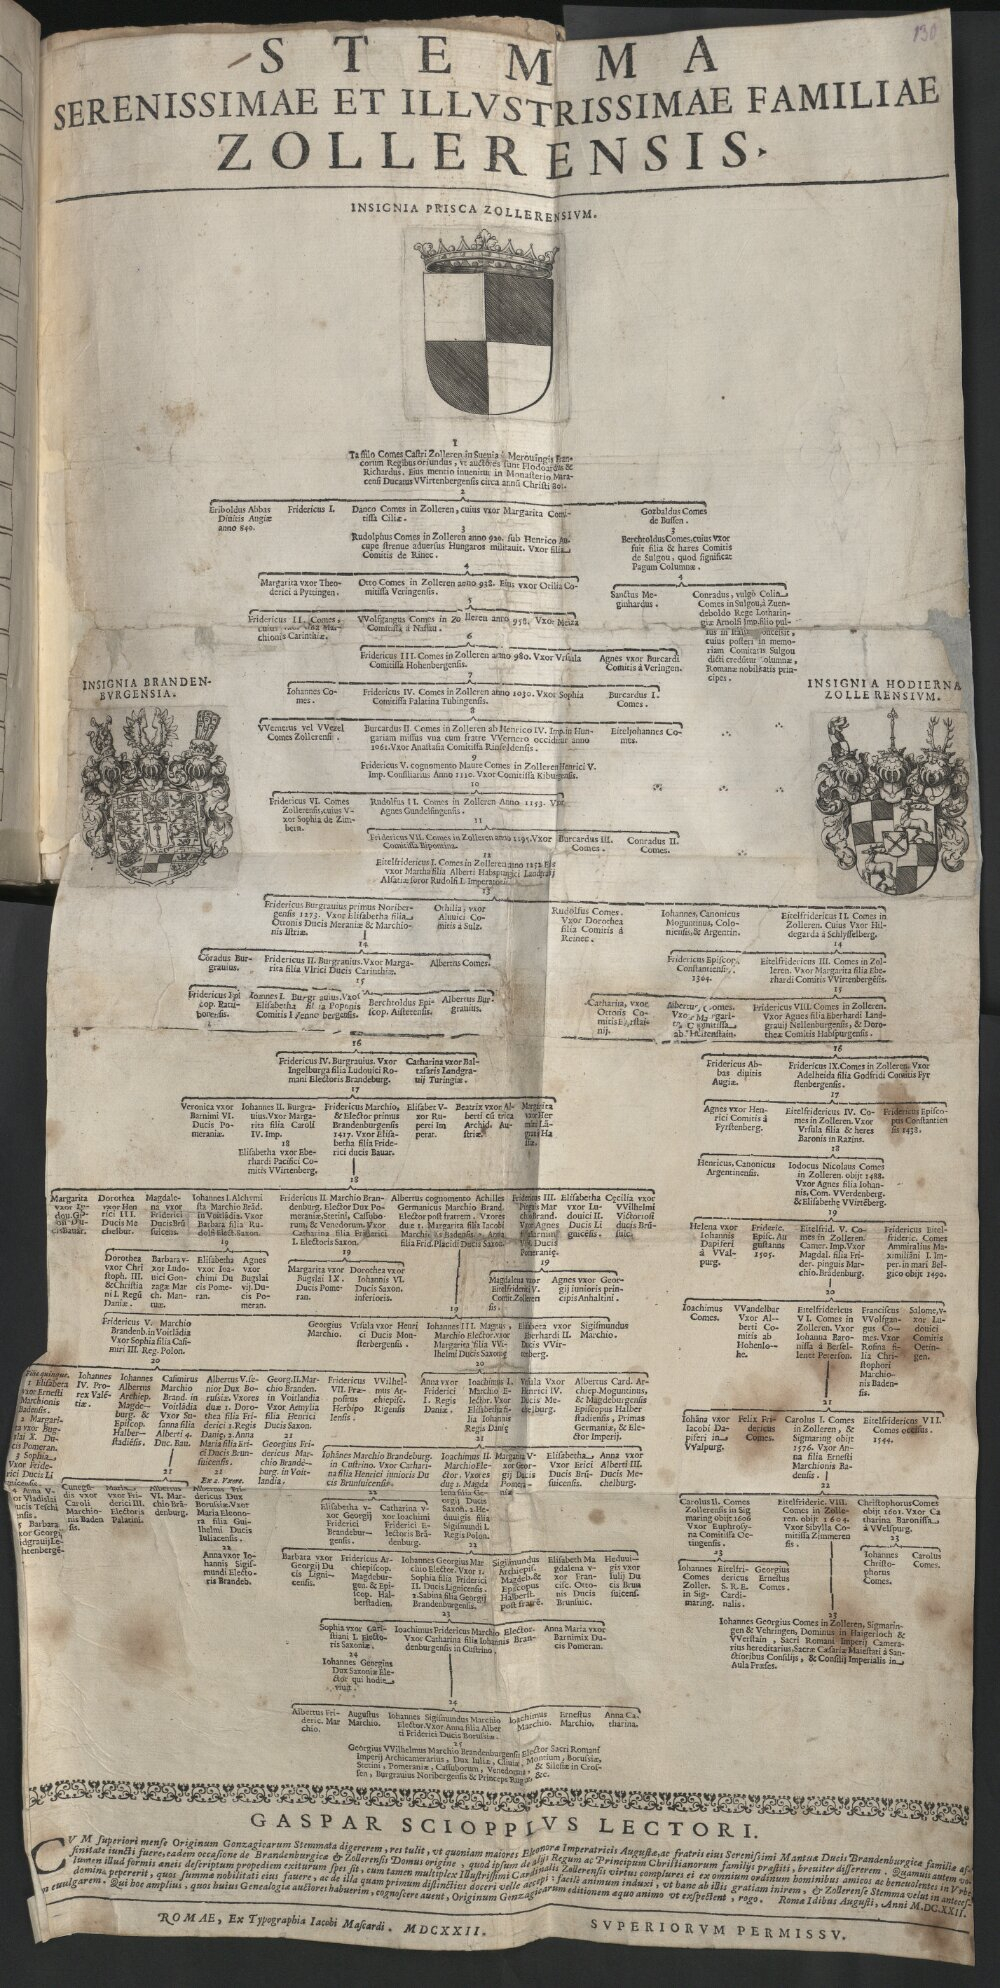 130
STEMMA
SERENISSIMAE ET ILLVSTRISSIMAE FAMILIAE
ZOLLERENSIS.
INSIGNIA PRISCA ZOLLERENSIVM.
1
Tassilo Comes Castri Zolleren in Suevia è Merouingis Fran-
corum Regibus oriundus, vt auctores sunt Flodoardus &
Richardus. Eius mentio inuenitur in Monasterio Mura-
censi Ducatus VVirtenbergensis circa annũ Christi 801.
2
Eriboldus Abbas
Divitis Augiæ
anno 840.
Fridericus I.
Danco Comes in Zolleren, cuius vxor Margarita Comi-
tissa Ciliæ.
Gotbaldus Comes
de Bussen.
3
Rudolphus Comes in Zolleren anno 920. sub Henrico Au-
cupe strenue aduersus Hungaros militauit. Vxor filia
Comitis de Rinec.
3
Berchtoldus Comes, cuius vxor
fuit filia & hæres Comitis
de Sulgou, quod significat
Pagum Columnæ.
4
Margarita vxor Theo-
derici à Pyttingen.
Otto Comes in Zolleren anno 938. Eius vxor Otilia Co-
mitissa Veringensis.
4
Sanctus Me-
ginhardus.
Conradus, vulgò Colin
Comes in Sulgou, à Zuen-
deboldo Rege Lotharin-
giæ Arnolfi Imp. filio pul-
sus in
cuius posteri in memo-
riam Comitatus Sulgou
dicti creduntur Columnæ,
Romanæ nobilitatis prin-
cipes.
5
Fridericus II. Comes,
chionis Carinthiæ.
VVolfgangus Comes in Zolleren anno 958. Vxor Meiza
Comitissa à Nassau.
6
Fridericus III. Comes in Zolleren anno 980. Vxor Vrsula
Comitissa Hohenbergensis.
Agnes vxor Burcardi
Comitis à Veringen.
INSIGNIA BRANDEN-
BVRGENSIA.
INSIGNIA HODIERNA
ZOLLERENSIVM.
7
Iohannes Co-
mes.
Fridericus IV. Comes in Zolleren anno 1030. Vxor Sophia
Comitissa Palatina Tubingensis.
Burcardus I.
Comes.
8
VVernerus vel VVezel
Comes Zollerensis.
Burcardus II Comes in Zolleren ab Henrico IV. Imp. in Hun-
gariam missus vna cum fratre VVernero occiditur anno
1061. Vxor Anastasia Comitissa Rinfeldensis.
Eiteljohannes Co-
mes.
9
Fridericus V. cognomento Maute Comes in Zolleren Henrici V.
Imp. Consiliarius Anno 1110. Vxor Comitissa Kiburgensis.
10
Fridericus VI. Comes
Zollerensis, cuius V-
xor Sophia de Zim-
bern.
Rudolfus II. Comes in Zolleren Anno 1153. Vxor
Agnes Gundelfingensis.
11
Fridericus VII. Comes in Zolleren anno 1195. Vxor
Comitissa Bipontina.
Burcardus III.
Comes.
Conradus II.
Comes.
12
Eitelfridericus I. Comes in Zolleren anno 1252 Eius
vxor Martha filia Alberti Habspurgici Landgravij
Alsatiæ soror Rudolfi I. Imperatoris.
13
Fridericus Burgrauius primus Noriber-
gensis 1273. Vxor Elisabetha filia
Ottonis Ducis Meraniæ & Marchio-
nis Istriæ.
Othilia, vxor
Almici Co-
mitis à Sulz.
Rudolfus Comes.
Vxor Dorothea
filia Comitis à
Reinec.
Iohannes, Canonicus
Moguntinus, Colo-
niensis, & Argentin.
Eitelfridericus II. Comes in
Zolleren. Cuius Vxor Hil-
degarda à Schlysselberg.
14
Coradus Bur-
grauius.
Fridericus II. Burgrauius. Vxor Marga-
rita filia Vlrici Ducis Carinthiæ.
Albertus Comes.
14
Fridericus Episcop.
Constantiensis,
1364.
Eitelfridericus III. Comes in Zol-
leren. Vxor Margarita filia Ebe-
rhardi Comitis VVirtenbergẽsis.
15
Fridericus Epi
cop. Ratis-
bonensis.
Ioannes I. Burgrauius. Vxor
Elisabetha filia Poponis
Comitis Hennenbergensis.
Berchtoldus Epi-
scop. Aistetensis.
Albertus Bur-
grauius.
15
Catharina, vxor
Ottonis Co-
mitis
nij.
Albertus Comes.
Vxor Margari-
ta Comitissa
ab Hohenstain.
Fridericus VIII. Comes in Zolleren.
Vxor Agnes filia Eberhardi Land-
grauij Nellenburgensis, & Doro-
theæ Comitis Habspurgensis.
16
Fridericus IV. Burgrauius. Vxor
Ingelburga filia Ludouici Ro-
mani Electoris Brandeburg.
Catharina vxor Bal-
tasaris Landgra-
uij Turingiæ.
16
Fridericus Ab-
bas divitis
Augiæ.
Fridericus IX. Comes in Zolleren. Vxor
Adelheida filia Godfridi Comitis Fyr
stenbergensis.
17
Veronica vxor
Barnimi VI.
Ducis Po-
meraniæ.
Iohannes II. Burgra-
uius. Vxor Marga-
rita filia Caroli
IV. Imp.
Fridericus Marchio,
& Elector primus
Brandenburgensis
1417. Vxor Elisa-
betha filia Fride-
rici ducis Bauar.
Elisabet V-
xor Ru-
perti Im
perat.
Beatrix vxor Al-
berti cũ trica
Archid. Au-
striæ.
Margarita
vxor Her
mãni Lã-
gra: Ha
siæ.
17
Agnes vxor Hen-
rici Comitis à
Fyrstenberg.
Eitelfridericus IV. Co-
mes in Zolleren. Vxor
Vrsula filia & heres
Baronis in Razins.
Fridericus Episco-
pus Constantien
sis 1433.
18
Elisabetha vxor Ebe-
rhardi Pacifici Co-
mitis VVirtenberg.
18
Henricus, Canonicus
Argentinensis.
Iodocus Nicolaus Comes
in Zolleren. obijt 1488.
Vxor Agnes filia Iohan-
nis, Com. VVerdenberg.
& Elisabethæ VVirtẽberg.
18
Margarita
vxor Lu-
dou. Gib-
bosi Du-
cis Bauar.
Dorothea
vxor Hen
rici III.
Ducis Me
chelbur.
Magdale-
na vxor
Friderici
Ducis Brũ
suicens.
Iohannes I. Alchymi
sta Marchio Brãd.
in Voitlãdia. Vxor
Barbara filia Ru-
dolfi Elect. Saxon.
Fridericus II Marchio Bran-
denburg. Elector Dux Po-
meraniæ, Stetini, Cassubo-
rum, & Venedorum. Vxor
Catharina filia Friderici
I. Electoris Saxon.
Albertus cognomento Achilles
Germanicus Marchio Brand.
Elector post fratrem. Vxores
duæ 1. Margarita filia Iacobi
Marchionis Badensis. 2. Anna
filia Frid. Placidi Ducis Saxon.
Fridericus III.
Pinguis Mar
chio Brand.
Vxor Agnes
VVarlarnin
VIII. Ducis
Pomeraniæ.
Elisabetha
vxor Lu-
douici II.
Ducis Li
gnicẽsis.
Cęcilia vxor
VVilhelmi
Victoriosi
ducis Brũ-
suic.
19
Helena vxor
Iohannis
Dapiferi
à VVal-
purg.
Frideric.
Episc. Au
gustanus
1505.
Eitelfrid. V. Co-
mes in Zolleren.
Camer. Imp. Vxor
Magdal. filia Fri-
der. pinguis Mar-
chio. Brãdenburg.
Fridericus Eitel-
frideric. Comes
Ammiralius Ma-
ximiliani I. Im-
per. in mari Bel-
gico obijt 1490.
19
Dorothea
vxor Chri
stoph. III.
& Christia
ni I. Regũ
Daniæ.
Barbara v-
xor Ludo-
uici Gon-
zagæ Mar
ch. Man-
tuæ.
Elisabetha
vxor Ioa-
chimi Du
cis Pome-
ran.
Agnes
vxor
Bugslai
vij. Du-
cis Po-
meran.
19
Margarita vxor
Bugslai IX.
Ducis Pome-
ran.
Dorothea vxor
Iohannis VI.
Ducis Saxon.
inferioris.
19
Magdalena vxor
Eitelfriderici V.
Comit. Zolleren
sis.
Agnes vxor Geor-
gij iunioris prin-
cipis Anhaltini.
19
Fridericus V. Marchio
Brandenb. in Voitlãdia
Vxor Sophia filia Casi-
miri III. Reg. Polon.
Georgius
Marchio.
Vrsula vxor Henri
ci Ducis Mon-
sterbergensis.
Iohannes III. Magnus,
Marchio Elector. vxor
Margarita filia VVi-
lhelmi Ducis Saxoniæ
Elisabeta vxor
Eberhardi II.
Ducis VVir-
tenberg.
Sigismundus
Marchio.
20
Ioachimus
Comes.
VVandelbar
Vxor Al-
berti Co-
mitis ab
Hohenlo-
he.
Eitelfridericus
VI. Comes in
Zolleren. Vxor
Iohanna Baro-
nissa à Bersel-
lenet Peterson.
Franciscus
VVolfgan-
gus Co-
mes. Vxor
Rosina fi-
lia Chri-
stophori
Marchio-
nis Baden-
sis.
Salome, v-
xor Lu-
douici
Comitis
Oetin-
gen.
20
Filiæ quinque.
1 Elisabeta
vxor Ernesti
Marchionis
Badensis.
2 Margari-
ta vxor Bug-
slai X. Du-
cis Pomeran.
3 Sophia
Vxor Fride-
rici Ducis Li
gnicensis.
4 Anna V-
xor Vladislai
Ducis Teschi
nensis.
5 Barbara
vxor Georgij
Landgrauij Le-
uchtenbergẽ-
Iohannes
IV. Pro-
rex Valẽ-
tiæ.
Iohannes
Albertus
Archiep.
Magde-
burg. &
Episcop.
Halber-
stadiẽsis.
Casimirus
Marchio
Brand. in
Voitlãdia
Vxor Su-
sanna filia
Alberti 4.
Duc. Bau.
Albertus V. se-
nior Dux Bo-
russiæ. Vxores
duæ 1. Doro-
thea filia Fri-
derici 1. Regis
Daniæ, 2. Anna
Maria filia Eri-
ci Ducis Brun-
suicensis.
Georg. II. Mar-
chio Branden.
in Voitlandia
Vxor Aemylia
filia Henrici
Ducis Saxon.
21
Georgius Fri-
dericus Mar-
chio Brande-
burg. in Voit-
landia.
Fridericus
VII. Præ-
positus
Herbipo
lensis.
VVilhel-
mus Ar-
chiepisc.
Rigensis
20
Anna vxor
Friderici
I. Regis
Daniæ.
Ioachimus I.
Marchio E-
lector. Vxor
Elisabetha fi-
lia Iohannis
Regis Daniæ
Vrsula Vxor
Henrici IV.
Ducis Me-
chelburg.
Albertus Card. Ar-
chiep. Moguntinus,
& Magdeburgensis
Episcopus Halber
stadiensis, Primas
Germaniæ, & Ele-
ctor Imperij.
21
Iohãna vxor
Iacobi Da-
piferi in
VValpurg.
Felix Fri-
dericus
Comes.
Carolus I. Comes
in Zolleren, &
Sigmaring obijt
1576. Vxor An-
na filia Ernesti
Marchionis Ba-
densis.
Eitelfridericus VII.
Comes occisus.
1544.
21
Iohãnes Marchio Brandeburg.
in Custrino. Vxor Cathari-
na filia Henrici iunioris Du
cis Brunsuicensis.
Ioachimus II.
Marchio Ele-
ctor. Vxores
duę 1. Magda
lena filia Ge-
orgij Ducis
Saxon. 2. He-
duuigis filia
Sigismundi I.
Regis Polon.
Margarita V-
xor Geor-
gij Ducis
Pomera-
niæ.
Elisabetha
Vxor Erici
Ducis Brũ-
suicensis.
Anna vxor
Alberti III.
Ducis Me-
chelburg.
21
Cunegũ-
dis vxor
Caroli
Marchio-
nis Baden
sis.
Maria
vxor Fri-
derici III.
Electoris
Palatini.
21
Albertus
VI. Mar-
chio Brã-
denburg.
21
Ex 2. Vxore.
Albertus Fri-
dericus Dux
Borussiæ. Vxor
Maria Eleono-
ra filia Gui-
lhelmi Ducis
Iuliacensis.
22
Anna vxor Io-
hannis Sigis-
mundi Electo-
ris Brandeb.
22
Elisabetha v-
xor Georgij
Friderici
Brandebur-
gensis.
Catharina v-
xor Ioachimi
Friderici E-
lectoris Brã-
denburg.
22
Carolus II. Comes
Zollerensis in Sig
maring obijt 1606
Vxor Euphrosy-
na Comitissa Oe-
tingensis.
Eitelfrideric. VIII.
Comes in Zolle-
ren. obijt 1604.
Vxor Sibylla Co-
mitissa Zimmeren
sis.
Christophorus Comes
obijt 1601. Vxor Ca
tharina Baronissa
à VVelspurg.
22
Barbara vxor
Georgij Du
cis Ligni-
censis.
Fridericus Ar-
chiepiscop.
Magdebur-
gen. & Epi-
scop. Hal-
berstadien.
Iohannes Georgius Mar
chio Elector. Vxor 1.
Sophia filia Friderici
II. Ducis Lignicensis.
2. Sabina filia Georgij
Brandenburgensis.
Sigismundus
Archiepis.
Magdeb. &
Episcopus
Halberst.
post fratrẽ.
Elisabeth Ma
gdalena v-
xor Fran-
cisc. Otto-
nis Ducis
Brunsuic.
Heduui-
gis vxor
Iulij Du
cis Brun
suicens.
23
Iohannes
Comes
Zoller.
in Sig-
maring.
Eitelfri-
dericus
S. R. E.
Cardi-
nalis.
Georgius
Ernestus
Comes.
23
Iohannes
Christo-
phorus
Comes.
Carolus
Comes.
23
Iohannes Georgius Comes in Zolleren, Sigmarin-
gen & Vehringen, Dominus in Haigerloch &
VVerstain, Sacri Romani Imperij Camera-
rius hereditarius, Sacræ Cæsariæ Maiestati à San-
ctioribus Consilijs, & Consilij Imperialis in
Aula Præses.
23
Sophia vxor Chri-
stiani I. Electo-
ris Saxoniæ.
Ioachimus Fridericus Marchio Elector.
Vxor Catharina filia Iohannis Bran-
denburgensis in Custrino.
Anna Maria vxor
Barnimix Du-
cis Pomeran.
24
Iohannes Georgius
Dux Saxoniæ Ele-
ctor qui hodie
viuit.
24
Albertus Fri-
deric. Mar
chio.
Augustus
Marchio.
Iohannes Sigismundus Marchio
Elector. Vxor Anna filia Alber
ti Friderici Ducis Borussiæ.
Ioachimus
Marchio.
Ernestus
Marchio.
Anna Ca-
tharina.
25
Georgius VVilhelmus Marchio Brandenburgensis Elector Sacri Romani
Imperij Archicamerarius, Dux Iuliæ, Cliuiæ, Montium, Borussiæ,
Stetini, Pomeraniæ, Cassuborum, Venedorum, & Silesiæ in Cros-
sen, Burgrauius Noribergensis & Princeps Rugiæ &c.
GASPAR SCIOPPIVS LECTORI.
CVM superiori mense Originum Gonzagicarum Stemmata digererem, res tulit, vt quoniam maiores Eleonoræ Imperatricis Augustæ, ac fratris eius Serenissimi Mantuæ Ducis Brandenburgicæ familiæ af-
finitate iuncti fuere, eadem occasione de Brandenburgicæ & Zollerensis Domus origine, quod ipsum de alijs Regum ac Principum Christianorum familijs præstiti, breuiter dissererem. Quamuis autem vo-
lumen illud formis æneis descriptum propediem exiturum spes sit, cum tamen multiplex Illustrissimi Cardinalis Zollerensis virtus complures ei ex omnium ordinum hominibus amicos ac beneuolentes in Vrbe
domina pepererit, quos summa nobilitati eius fauere, ac de illa quam primum distinctius doceri velle accepi: facilè animum induxi, vt hanc ab illis gratiam inirem, & Zollerense Stemma velut in anteces-
m euulgarem. Qui hoc amplius, quos huius Genealogiæ auctores habuerim, cognoscere auent, Originum Gonzagicarum editionem æquo animo vt exspectent, rogo. Romæ Idibus Augusti, Anni M.DC.XXII.
ROMAE, Ex Typographia Iacobi Mascardi. MDCXXII.
SVPERIORVM PERMISSV.